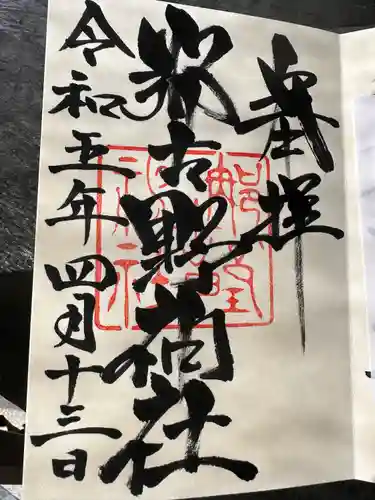 奉拝
那古野神社
令和五年四月十三日